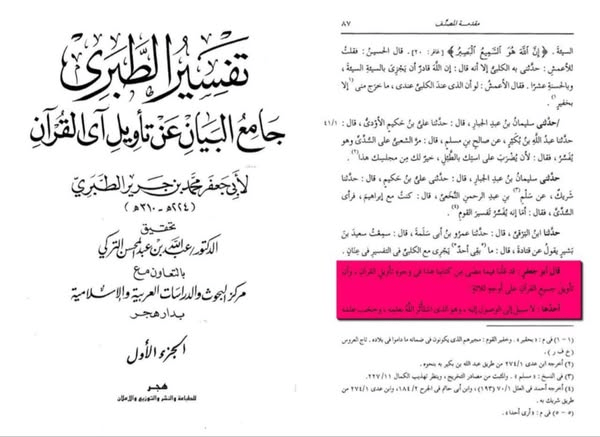 تفسير الطبرى
جامع البيان عن تأويل آى القرآن
لأبى جعفر محمد بن جرير الطبرى
(٢٢٤هـ - ٣١٠هـ)
تحقيق
الدكتور عبد الله بن عبد المحسن التركي
بالتعاون مع
مركز البحوث والدراسات العربية والإسلامية
بدار هجر
الجزء الأول
هجر
للطباعة والنشر والتوزيع والإعلان
مقدمة المصنف
٨٧
السيئة. ﴿إِنَّ اللَّهَ هُوَ السَّمِيعُ الْبَصِيرُ﴾ [غافر: ٢٠]. قال الحسين: فقلتُ
للأعمش: حدَّثنى به الكلبىُّ إلا أنه قال: إن اللَّهَ قادرٌ أن يَجْزِىَ بالسيئة السيئةَ،
وبالحسنة عشرًا. فقال الأعمش: لو أن الذى عندَ الكلبىِّ عندى، ما خرَج منى إلا
بخفير(١).
حدَّثنى سليمانُ بنُ عبدِ الجبارِ، قال: حدَّثنا علىُّ بنُ حكيمٍ الأوْدىُّ، قال:
٤١/١
حدَّثنا عبدُ اللَّهِ بنُ بُكَيْرٍ، عن صالحِ بنِ مسلمٍ، قال: مرَّ الشعبىُّ على السُّدِّىِّ وهو
يُفَسِّرُ، فقال: لأن يُضْرَبَ على استِك بالطَّبْلِ، خيرٌ لك من مجلسِك هذا(٢).
حدَّثنى سليمانُ بنُ عبدِ الجبارِ، قال: حدَّثنا علىُّ بنُ حكيمٍ، قال: حدَّثنا
شَرِيكٌ، عن سَلْمِ(٣) بنِ عبدِ الرحمنِ النَّخَعىِّ، قال: كنتُ مع إبراهيمَ، فرأى
السُّدِّىَّ، فقال: أمَا إنه يُفَسِّرُ تفسيرَ القومِ(٤).
حدَّثنا ابنُ البَرْقىِّ، قال: حدَّثنا عمرُو بنُ أبى سَلَمةَ، قال: سمِعتُ سعيدَ بنَ
بَشيرٍ يقولُ عن قتادةَ، قال: ما (٥بقى أحدٌ٥) يَجْرِى مع الكلبىِّ فى التفسيرِ فى عِنانٍ.
قال أبو جعفرٍ: قد قلنا فيما مضى من كتابنا هذا فى وجوه تأويل القرآن، وأن
تأويلَ جميع القرآن على أوجهٍ ثلاثةٍ:
أحدُها: لا سبيلَ إلى الوصولِ إليه، وهو الذى استأثَر اللَّهُ بعلمِه، وحجَب علمَه
(١ - ١) فى م: «بحقير». وخفير القوم: مجيرهم الذى يكونون فى ضمانه ما داموا فى بلاده. تاج العروس
(خ ف ر).
(٢) أخرجه ابن عدى ٢٧٤/١ من طريق عبد الله بن بكير به بنحوه.
(٣) فى النسخ: «مسلم». والمثبت من مصادر التخريج، وينظر تهذيب الكمال ٢٢٧/١١.
(٤) أخرجه أحمد فى العلل ٧٠/١ (٩٣)، وابن أبى حاتم فى الجرح ١٨٤/٢، وابن عدى ٢٧٤/١ من
طريق شريك به.
(٥ - ٥) فى م: «أرى أحدا».